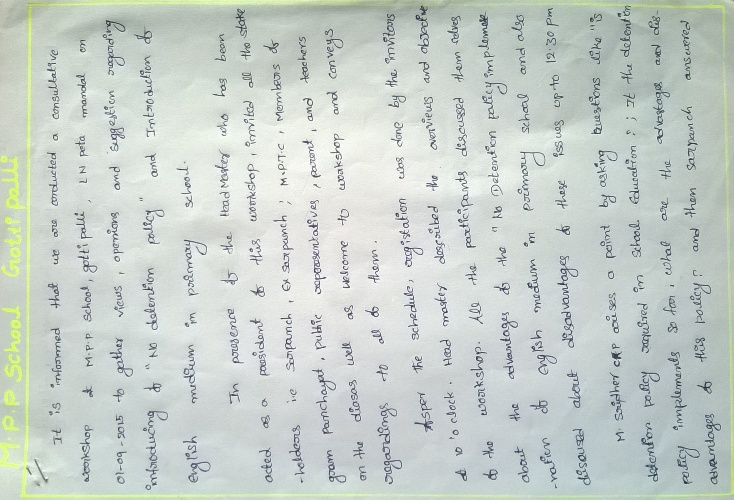 M.P.P School Gotti palli
It is informed that we are conducted a consultative
workshop at M.P.P School, gotti palli, LN peta mandal on
01-09-2015 to gather views, openions and suggestion regarding
introducing of "No detention policy" and Introduction of
english medium in primary school.
In presence of the Head Master who has been
acted as a president of this workshop, invited all the stake
-holders i.e sarpanch, ex sarpanch; M.P.T.C, Members of
gram panchayat, public representatives, parent, and teachers
on the diases well as welcome to workshop and conveys
regardings to all of them.
Asper the schedule, registation was done by the invitors
at 10 'o clock. Head master described the overviews and objective
of the workshop. All the participants discussed them selves
about the advantages of the "No Detention policy impleme
-ration of english medium in primary school and also
discused about disadvantages of these issues up to 12:30 pm
M. Sridher CRP arises a point by asking questions like "is
detention policy required in school education?; If the detention
policy implements so far; what are the advantages and dis-
advantages of this policy? and them sarpanch answered